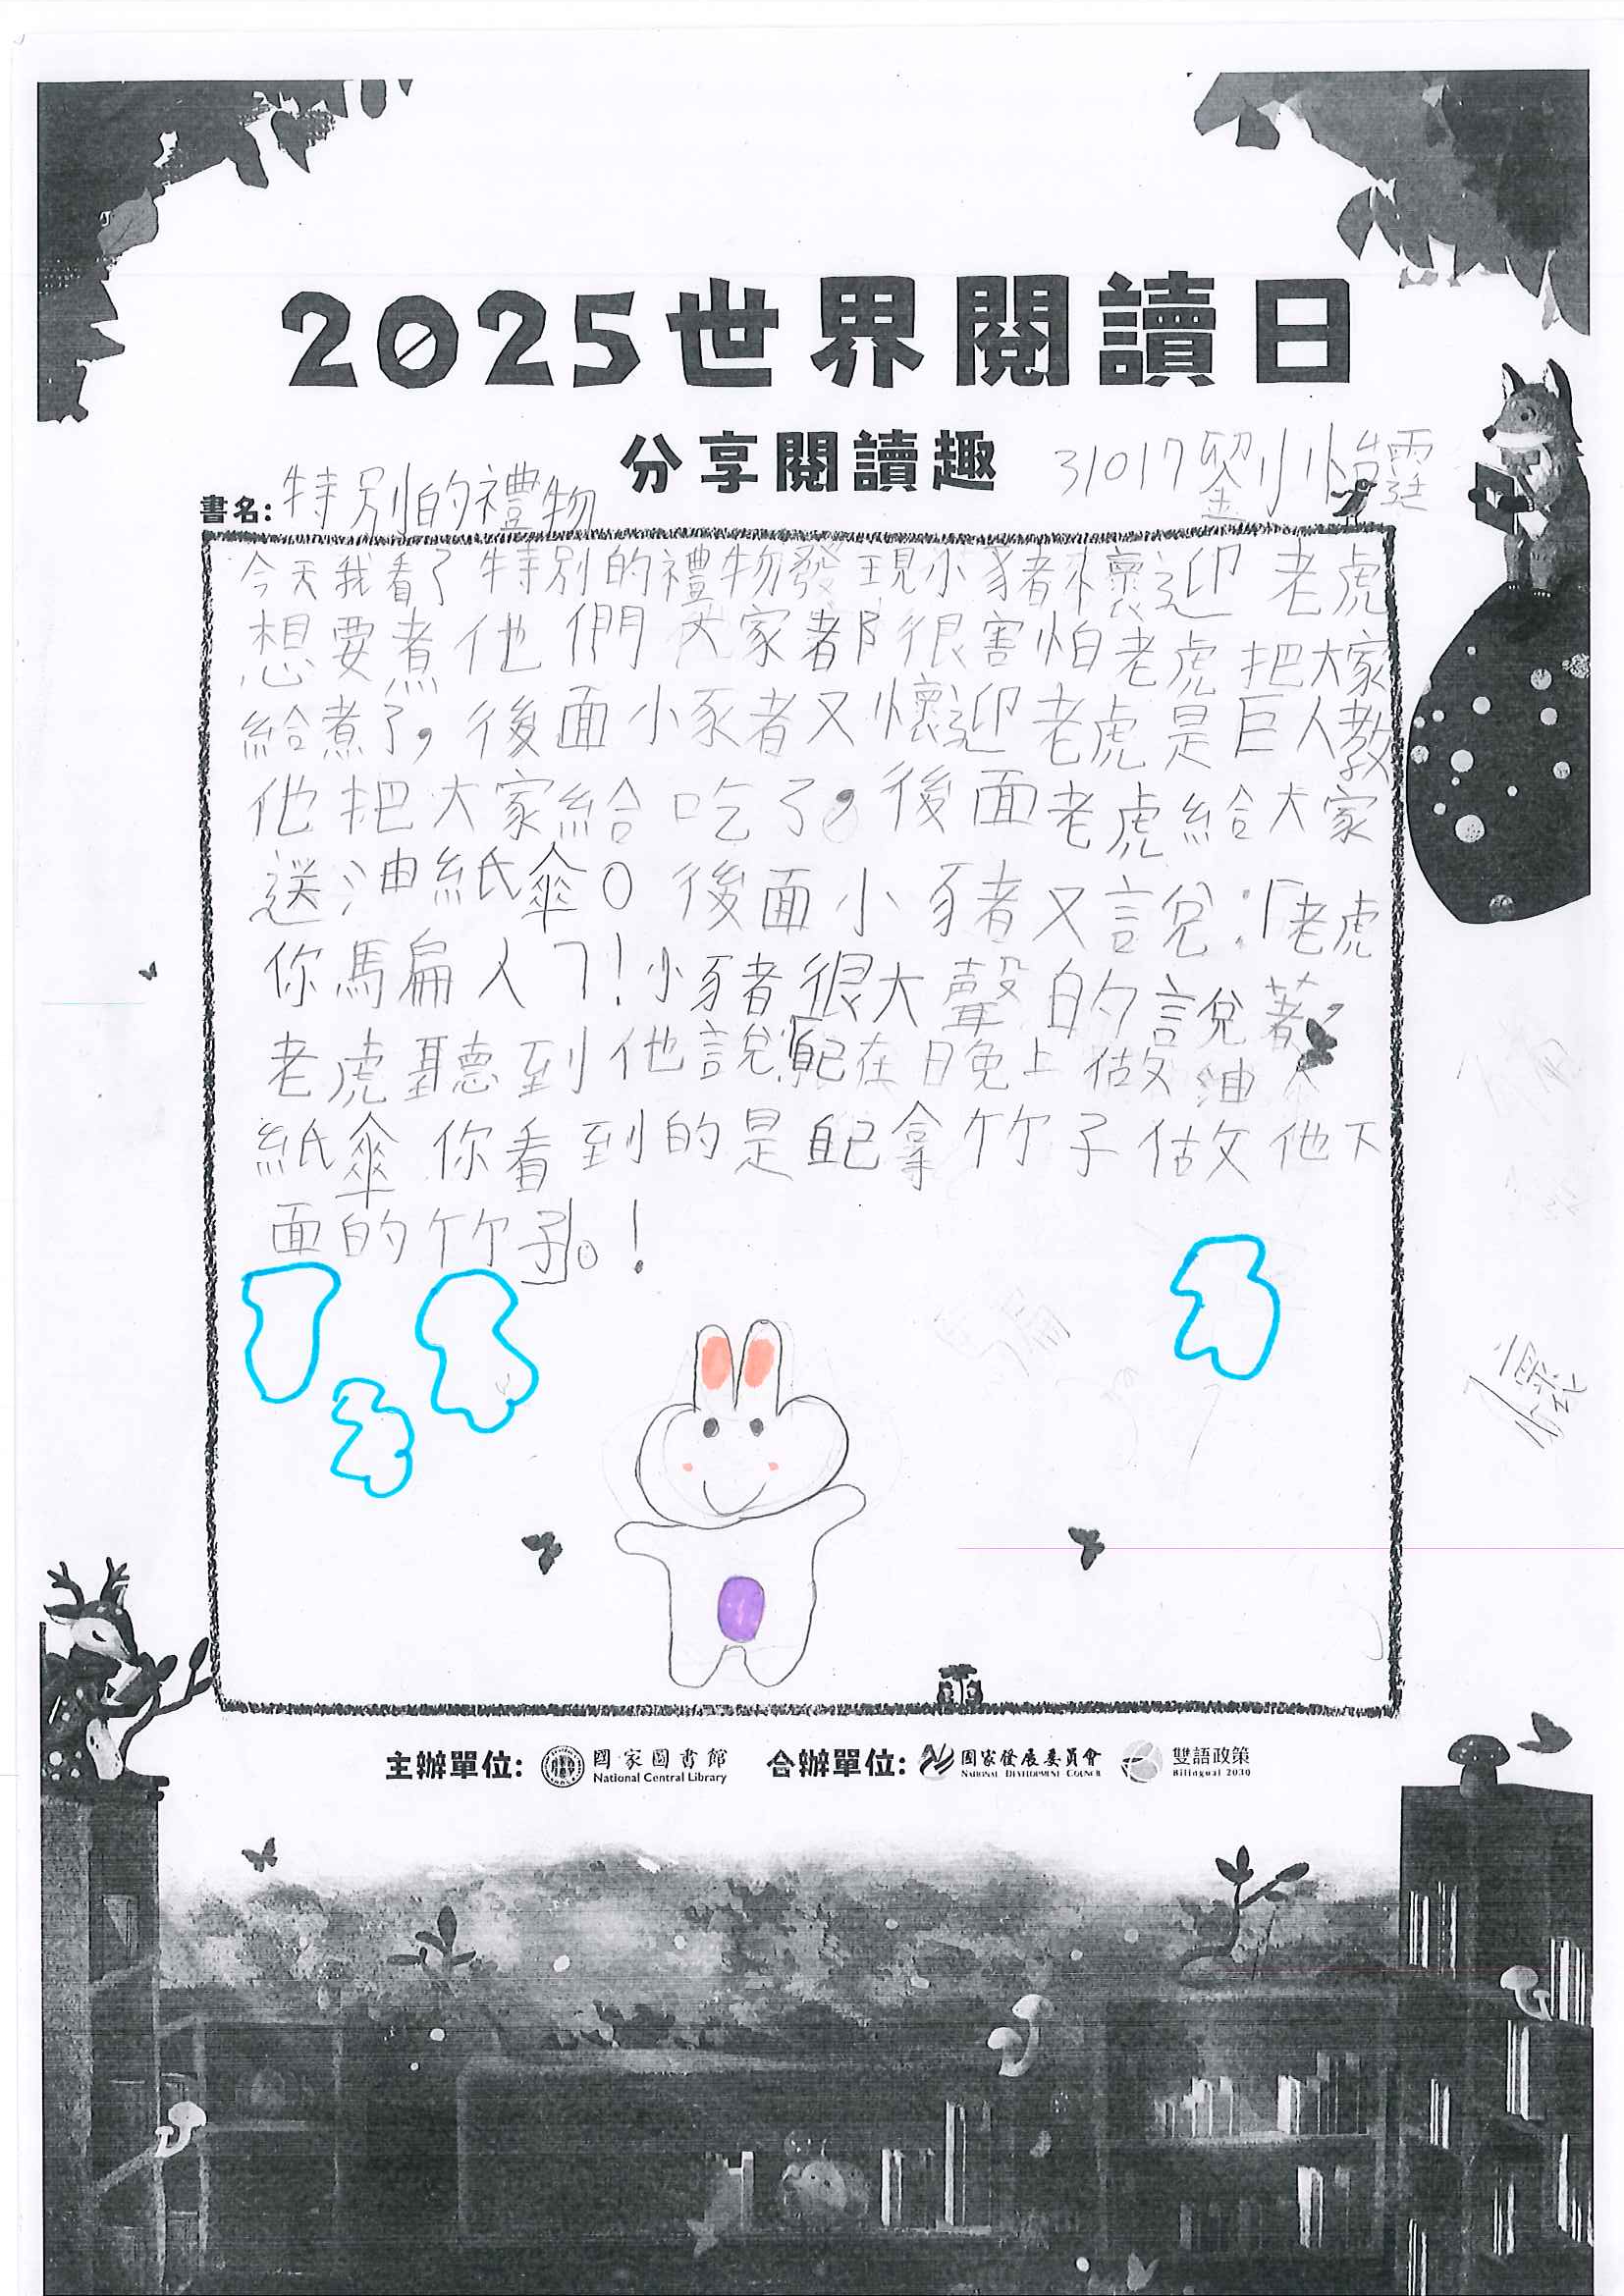 2025世界閱讀日
分享閱讀趣
31017劉小怡霆
書名:特別的禮物
今天我看了特別的禮物發現小豬木懷迎老虎
想要煮他們大家都很害怕老虎把大家
給煮了,後面小豕者又懷迎老虎是巨人教
他把大家給吃了,後面老虎給大家
送油紙傘。後面小豬又說:「老虎
你馬扁人了!小豬很大聲的說著,
老虎聽到他說:「自己在日晚上做油
紙傘你看到的是自己拿竹子做他下
面的竹子。!
主辦單位: 國家圖書館 National Central Library 合辦單位: 國家發展委員會 NATIONAL DEVELOPMENT COUNCIL 雙語政策 Bilingual 2030